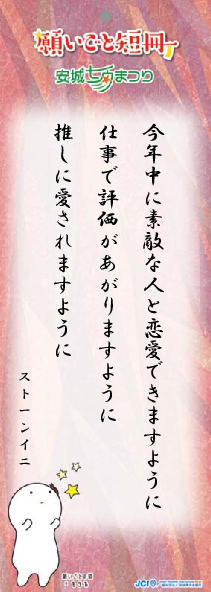 願いごと短冊
安城七夕まつり
今年中に素敵な人と恋愛できますように
仕事で評価があがりますように
推しに愛されますように
ストーンイニ
願いごと短冊
JCI